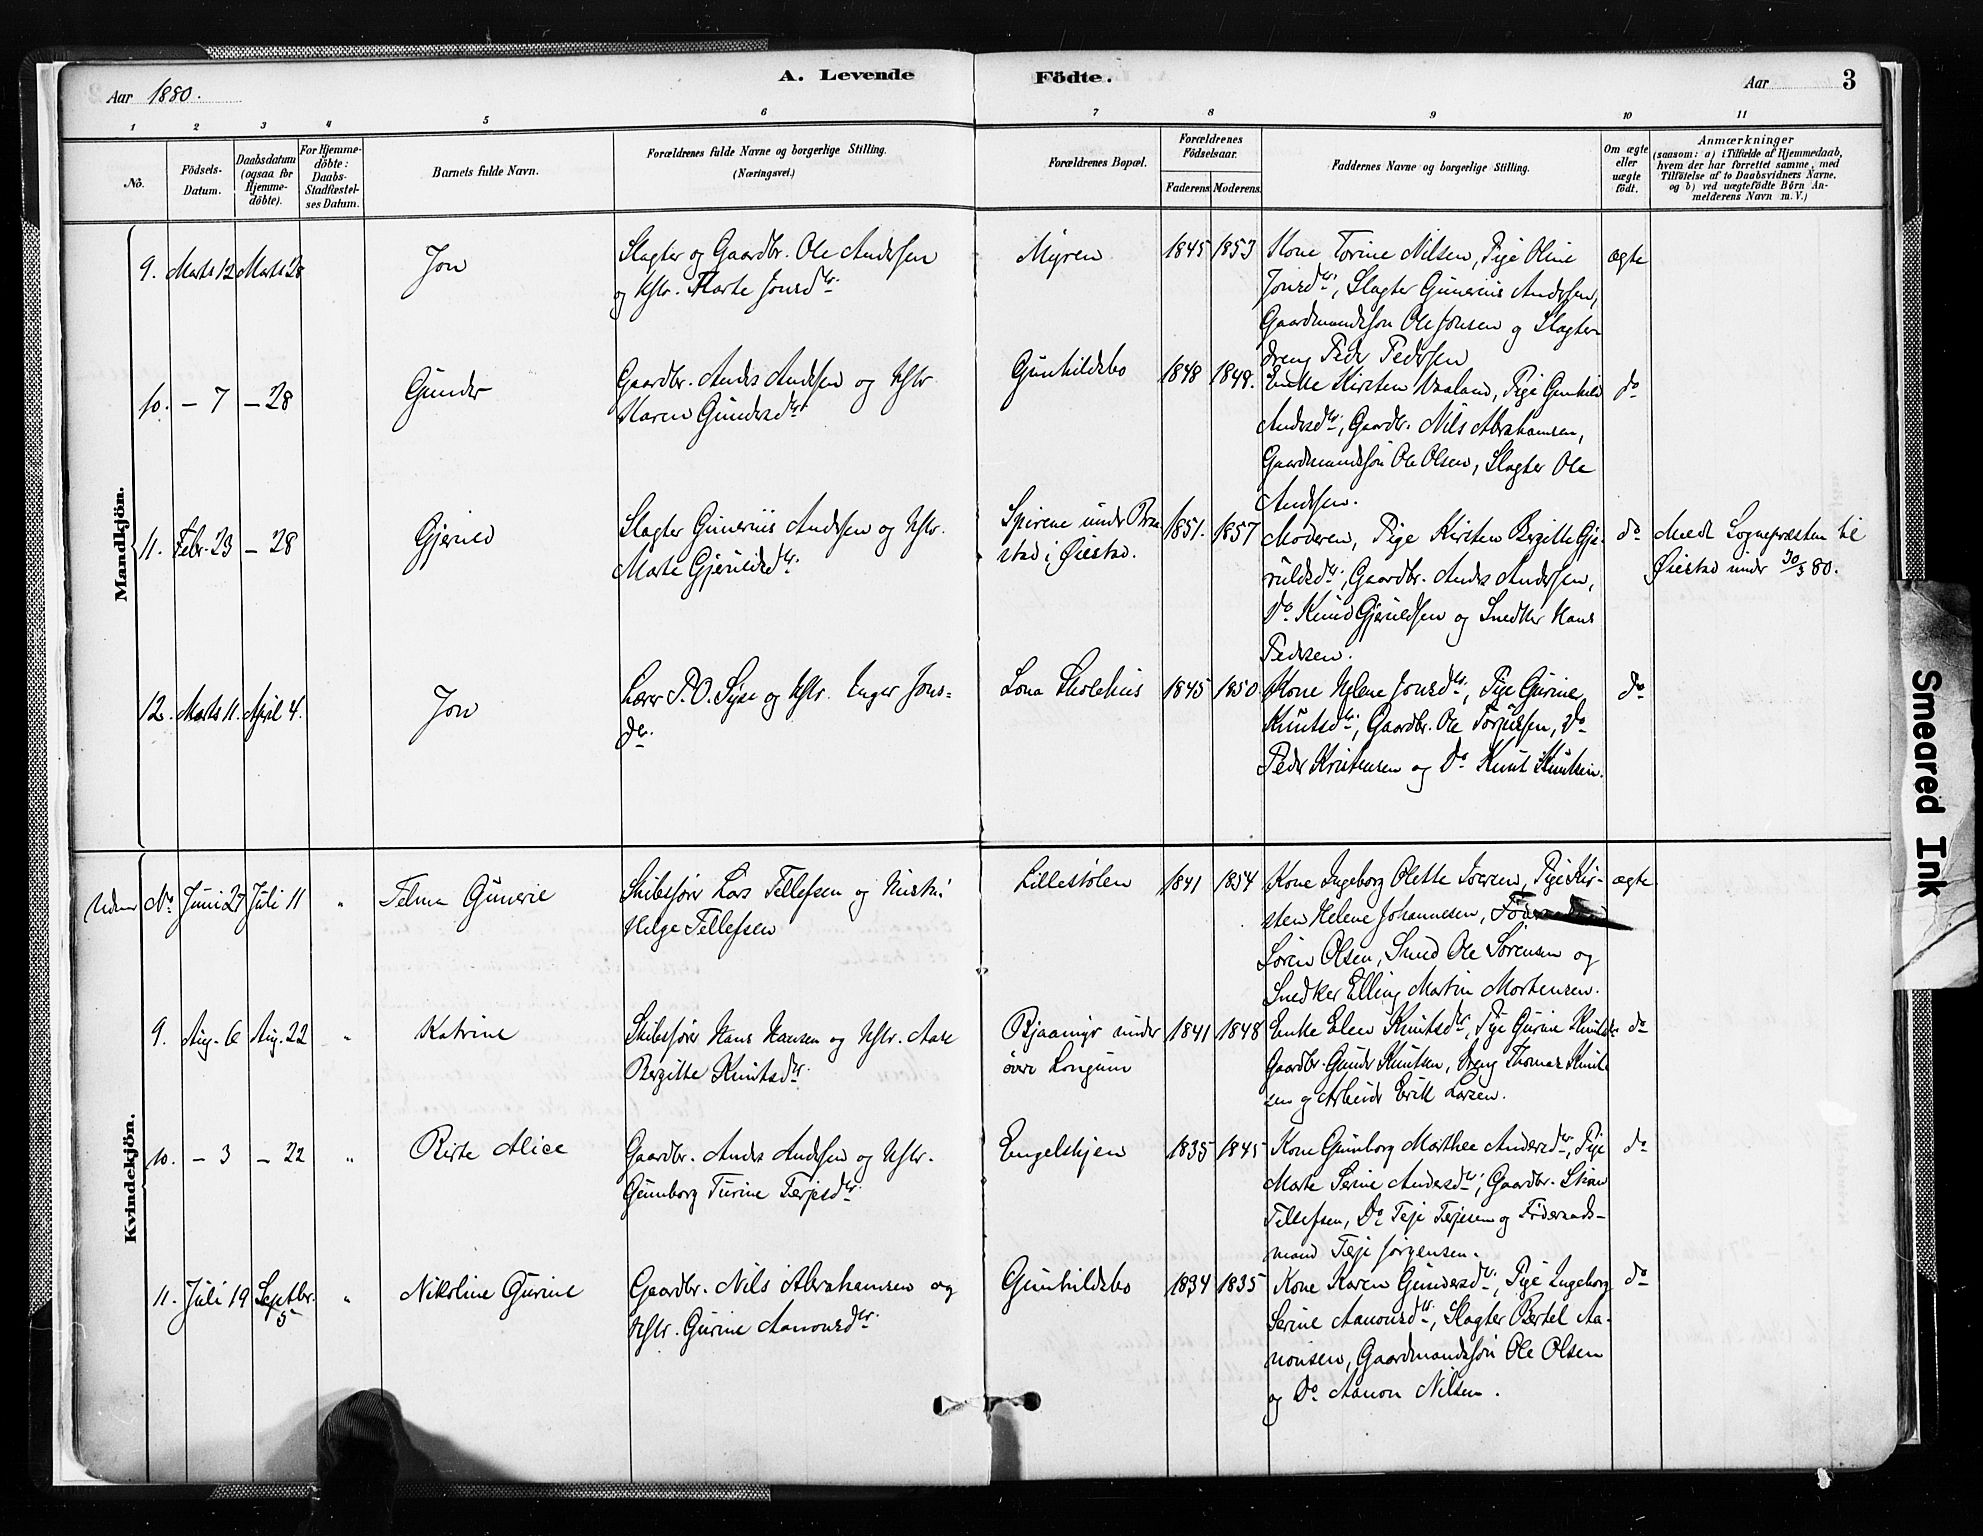 A. Levende Födte.
Aar 1880.
Aar
3
1 2 3 4 5 6 7 8 9 10 11
No.
Födsels-
Datum.
Daabsdatum
(ogsaa for
Hjemme-
döbte).
For Hjemme-
döbte:
Daabs-
Stadfæstel-
ses Datum.
Barnets fulde Navn.
Forældrenes fulde Navne og borgerlige Stilling.
(Næringsvei.)
Forældrenes Bopæl.
Forældrenes
Födselsaar.
Faderens Moderens
Faddernes Navne og borgerlige Stilling.
Om ægte
eller
uægte
født.
Anmærkninger
(saasom: a) i Tilfælde af Hjemmedaab,
hvem der har forrettet samme, med
Tilföielse af to Daabsvidners Navne,
og b) ved uægtefödte Börn An-
melderens Navn m. V.)
Mandkjön.
9. Marts 12 Marts 28
Jon
Slagter og Gaardbr. Ole Andersen
og Hstr. Marte Jonsdtr.
Myren
1845 1853
Kone Torine Nilsen, Pige Oline
Jonsdtr., Slagter Gunerius Andersen,
Gaardmandssøn Ole Jonsen og Slagter-
dreng Peder Pedersen
ægte
10. – 7 – 28
Gunder
Gaardbr. Anders Andersen og Hstr
Karen Gundersdtr.
Gunhildsbo
1848 1848.
Enke Kirsten Vraaland, Pige Gunhild
Andersdtr., Gaardbr. Nils Abrahamsen,
Gaardmandssøn Ole Olsen, Slagter Ole
Andersen.
do
11. Febr. 23 – 28
Gjeruld
Slagter Gunerius Andersen og Hstr.
Marte Gjeruldsdtr.
Spirene under Bra
stad i Øiestad.
1851. 1857
Moderen, Pige Kirsten Bergitte Gje-
ruldsdtr., Gaardbr. Anders Andersen,
Do Knud Gjeruldsen og Snedker Hans
Pedersen.
do
Meldt Sognepræsten til
Øiestad under 30/3 80.
12. Marts 11. April 4.
Jon
Lærer P. O. Syse og Hstr. Inger Jons-
dtr.
Lona Skolehus
1845 1850
Kone Helene Jonsdtr., Pige Gurine
Knutsdtr., Gaardbr. Ole Torjussen, Do
Peder Kristensen og Do Knut Knutsen.
do
Kvindekjön.
Uden No Juni 27 Juli 11 "
Telma Gunerie
Skibsfører Lars Tellefsen og Hustru
Helga Tellefsen
Lillestølen
1841 1854
Kone Ingeborg Olette Isersen, Pige Kir-
sten Helene Johannesen,
Søren Olsen, Smed Ole Sørensen og
Snedker Elling Martin Mortensen.
ægte
9. Aug. 6 Aug. 22 "
Katrine
Skibsfører Hans Hansen og Hstr. Aase
Bergitte Knutsdtr.
Bjaamyr under
øvre Longum
1841 1848
Enke Elen Knutsdtr., Pige Gurine Knutsdtr
Gaardbr. Gunder Knutsen, Dreng Thomas Knut
sen og Arbeider Erik Larsen.
do
10. – 3 – 22 "
Birte Alice
Gaardbr. Anders Andersen og Hstr.
Gunborg Turine Terjesdtr.
Engelskjen
1835 1845
Kone Gunborg Marthea Andersdtr., Pige
Marte Serine Andersdtr., Gaardbr. Stian
Tellefsen, Do Terje Terjesen og Føderaads-
mand Terje Jørgensen.
do
11. Juli 19 Septbr. 5 "
Nikoline Gurine
Gaardbr. Nils Abrahamsen og
Hstr. Gurine Aanonsdtr.
Gunhildsbo
1834 1835
Kone Karen Gundersdtr., Pige Ingeborg
Serine Aanonsdtr., Slagter Bertel Aa-
nonsen, Gaardmandssøn Ole Olsen
og Do Aanon Nilsen.
do
Smeared Ink